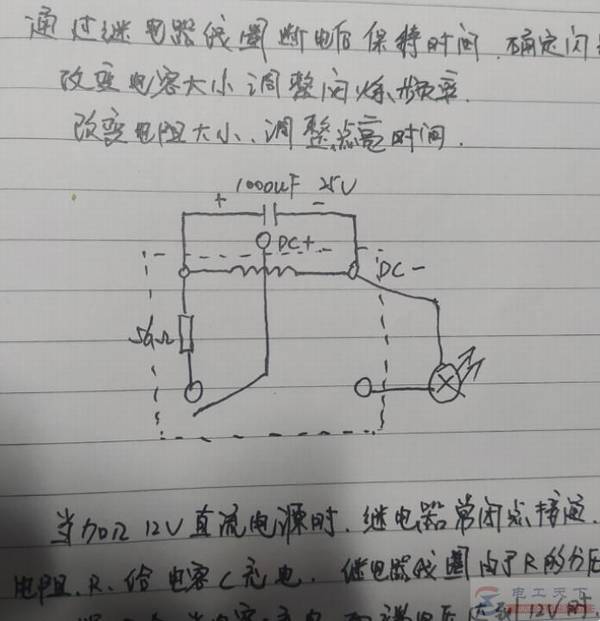 通过继电器线圈断电后保持时间,确定闪
改变电容大小调整闪烁频率.
改变电阻大小、调整点亮时间.
1000uF 25V
+ -
DC+
DC-
56Ω
当加血 12V 直流电源时.继电器常闭点接通.
电阻.R.给电容C充电.继电器线圈由于R的分压
电工天下
12V时.